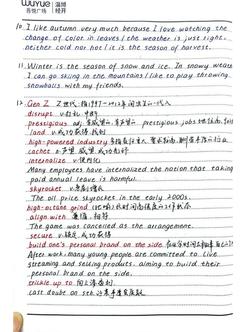 WUYUE 淄博
吾悦广场 经开
10. I like autumn very much because I love watching the
change of color in leaves / the weather is just right,
neither cold nor hot / it is the season of harvest.
11. Winter is the season of snow and ice. In snowy weather
I can go skiing in the mountains / like to play throwing
snowballs with my friends.
12. Gen Z Z世代: 指1997-2012年间出生的一代人
disrupt v.打乱, 中断
prestigious adj. 有威望的, 有声望的 prestigious jobs
land v.成功获得, 找到
high-powered industry
cachet n.声望, 威望
internalize v.使内化
Many employees have internalized the notion that taking
paid annual leave is harmful.
skyrocket v.
The oil price skyrockets in the early 2000s.
high-octane grind
align with 遵循, 相符
The game was cancelled as the arrangement.
secure v.稳定, 成功获得
build one's personal brand on the side.
After work, many young people are committed to live
streaming and selling products, aiming to build their
personal brand on the side.
trickle up to 向上
cast doubt on sth 对某事产生怀疑